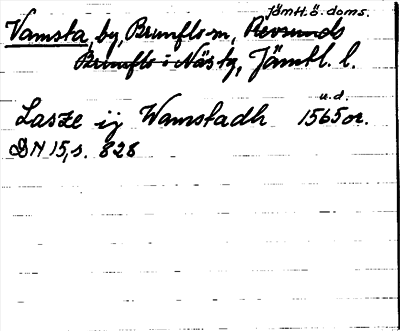 Jämtl. ö. doms.
Vamsta, by, Brunflo sn, Revsunds
Brunflo i Näs tg, Jämtl. l.
u.d.
Lasze ij Wamstadh 1565 or.
DN 15, s. 828